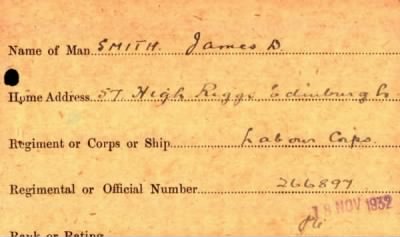 Name of Man SMITH. James D.
Home Address 57 High Riggs Edinburgh
Regiment or Corps or Ship Labour Corps
Regimental or Official Number 266897
18 NOV 1932
Rank or Rating Pte